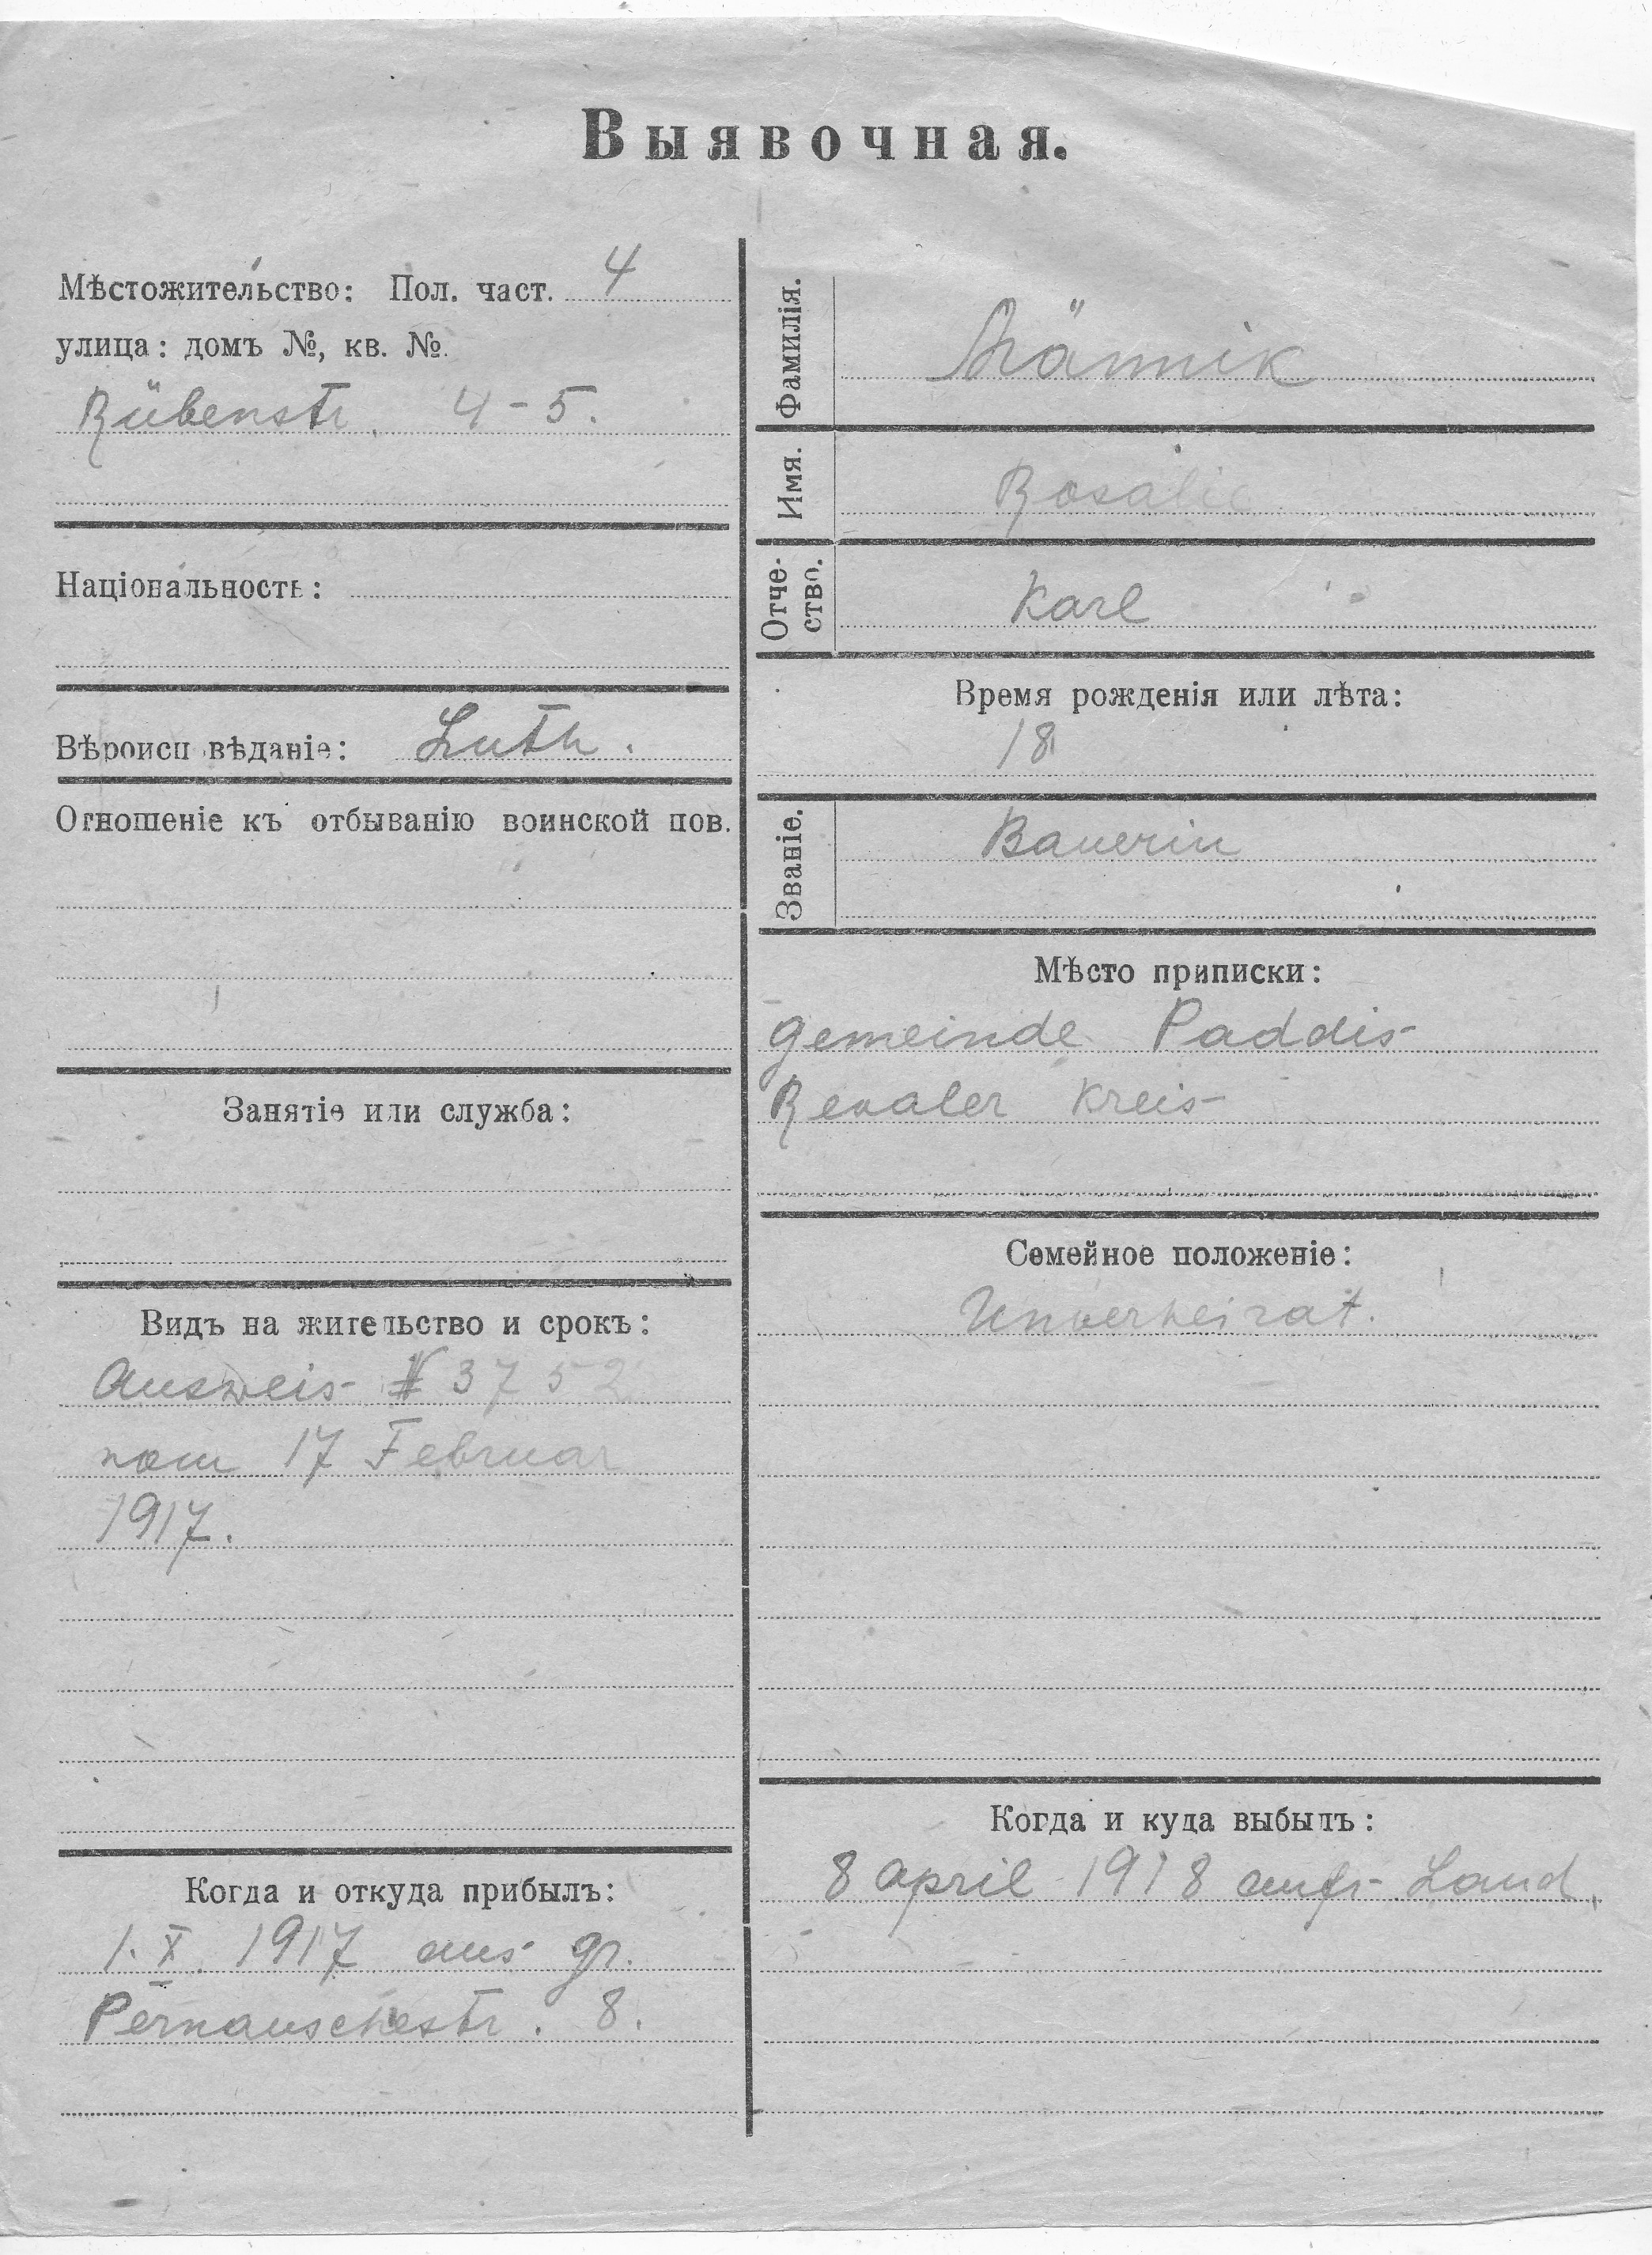 Выявочная.
Мѣстожительство: Пол. част. 4
улица: домъ №, кв. №.
Rübenstr. 4-5.
Національность:
Вѣроисп вѣданіе: Luth.
Отношеніе къ отбыванію воинской пов.
Занятіе или служба:
Видъ на жительство и срокъ:
Ausweis N 3752
vom 17 Februar
1917.
Когда и откуда прибылъ:
1. X. 1917 aus gr.
Pernauschestr. 8.
Фамилія. Männik
Имя. Rosalie
Отче-
ство. Karl
Время рожденія или лѣта:
18
Званіе. Bauerin
Мѣсто приписки:
Gemeinde Paddis
Revaler Kreis
Семейное положеніе:
Unverheirat.
Когда и куда выбылъ:
8 April 1918 aufs Land.